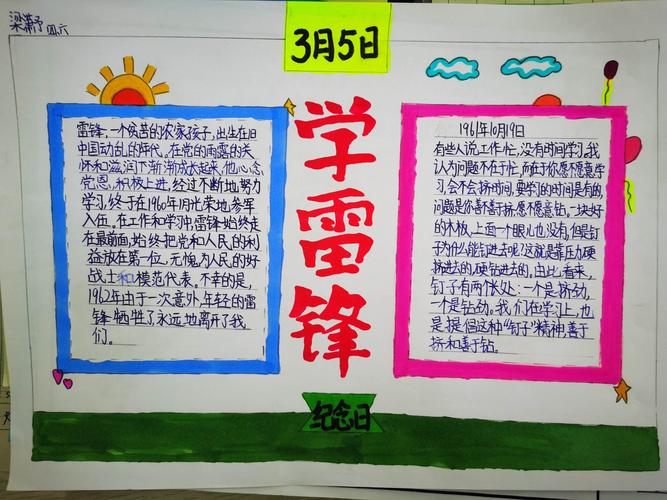 梁潇予 四六
3月5日
学雷锋
纪念日
雷锋,一个贫苦的农家孩子,出生在旧
中国动乱的年代。在党的雨露的关
怀和滋润下渐渐成长起来,他心念
党恩,积极上进,经过不断地努力
学习,终于在1960年1月光荣地参军
入伍。在工作和学习中,雷锋始终走
在最前面,始终把党和人民的利
益放在第一位,无愧为人民的好
战士和模范代表。不幸的是,
1962年由于一次意外,年轻的雷
锋牺牲了,永远地离开了我
们。
1961年10月19日
有些人说工作忙,没有时间学习。我
认为问题不在于忙,而在于你愿不愿意学
习,会不会挤时间,要学习的时间是有的,
问题是你善不善于挤,愿不愿意钻。一块好
的木板,上面一个眼也没有,但是钉
子为什么能钻进去呢?这就是靠压力硬
挤进去的,硬钻进去的,由此看来,
钉子有两个长处:一个是挤劲,
一个是钻劲。我们在学习上,也
是提倡这种"钉子"精神,善于
挤和善于钻。